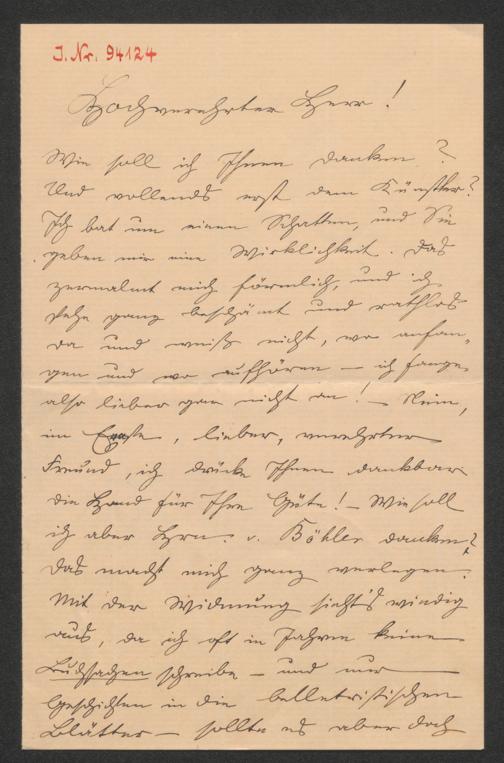 J. Nr. 94124
Hochverehrter Herr!
Wie soll ich Ihnen danken?
Und vollends erst dem Künstler?
Ich bat um einen Schatten, und Sie
geben mir eine Wirklichkeit. Das
zermalmt mich förmlich, und ich
stehe ganz beschämt und rathlos
da und weiß nicht, wo anfan-
gen und wo aufhören – ich fange
also lieber gar nicht an! – Nein,
im Ernste, lieber, verehrter
Freund, ich drücke Ihnen dankbar
die Hand für Ihre Güte! – Wie soll
ich aber Hrn. v. Böhler danken?
Das macht mich ganz verlegen.
Mit der Widmung sieht's windig
aus, da ich oft in Jahren keine
Buchsachen schreibe – und nur
Geschichten in die belletristischen
Blätter – sollte es aber doch